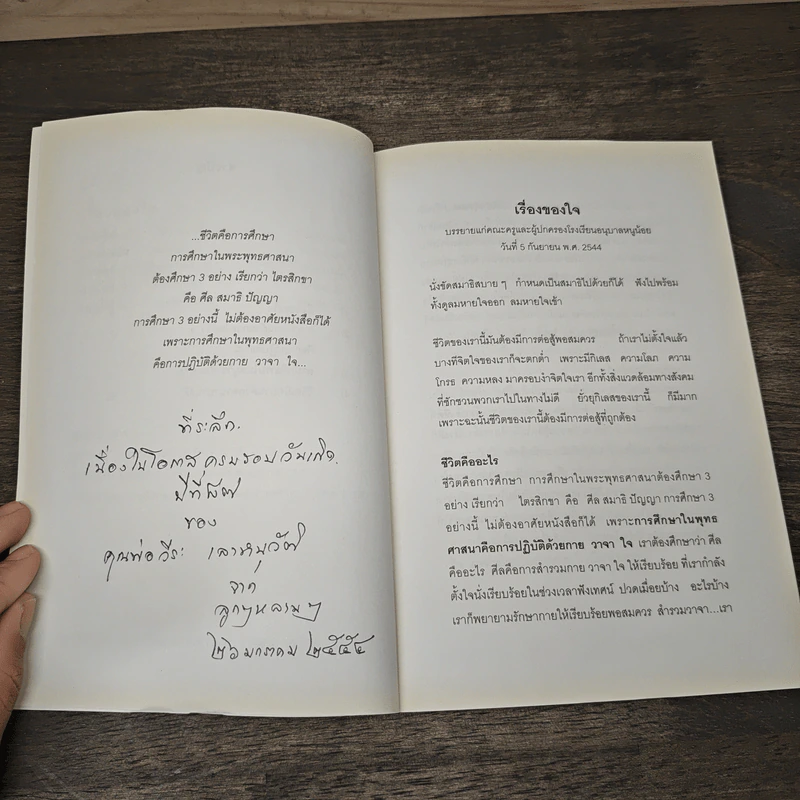 ...ชีวิตคือการศึกษา
การศึกษาในพระพุทธศาสนา
ต้องศึกษา 3 อย่าง เรียกว่า ไตรสิกขา
คือ ศีล สมาธิ ปัญญา
การศึกษา 3 อย่างนี้ ไม่ต้องอาศัยหนังสือก็ได้
เพราะการศึกษาในพุทธศาสนา
คือการปฏิบัติด้วยกาย วาจา ใจ...
ที่ระลึก
เนื่องในโอกาสครบรอบวันเกิด
ปีที่
ของ
คุณพ่อวีระ
จาก
ลูกๆหลานๆ
๒๖ มกราคม ๒๕๕๔
เรื่องของใจ
บรรยายแก่คณะครูและผู้ปกครองโรงเรียนอนุบาลหนูน้อย
วันที่ 5 กันยายน พ.ศ. 2544
นั่งขัดสมาธิสบาย ๆ กำหนดเป็นสมาธิไปด้วยก็ได้ ฟังไปพร้อม
ทั้งดูลมหายใจออก ลมหายใจเข้า
ชีวิตของเรานี้มันต้องมีการต่อสู้พอสมควร ถ้าเราไม่ตั้งใจแล้ว
บางทีจิตใจของเราก็จะตกต่ำ เพราะมีกิเลส ความโลภ ความ
โกรธ ความหลง มาครอบงำจิตใจเรา อีกทั้งสิ่งแวดล้อมทางสังคม
ที่ชักชวนพวกเราไปในทางไม่ดี ยั่วยุกิเลสของเรานี้ ก็มีมาก
เพราะฉะนั้นชีวิตของเรานี้ต้องมีการต่อสู้ที่ถูกต้อง
ชีวิตคืออะไร
ชีวิตคือการศึกษา การศึกษาในพระพุทธศาสนาต้องศึกษา 3
อย่าง เรียกว่า ไตรสิกขา คือ ศีล สมาธิ ปัญญา การศึกษา 3
อย่างนี้ ไม่ต้องอาศัยหนังสือก็ได้ เพราะการศึกษาในพุทธ
ศาสนาคือการปฏิบัติด้วยกาย วาจา ใจ เราต้องศึกษาว่า ศีล
คืออะไร ศีลคือการสำรวมกาย วาจา ใจ ให้เรียบร้อย ที่เรากำลัง
ตั้งใจนั่งเรียบร้อยในช่วงเวลาฟังเทศน์ ปวดเมื่อยบ้าง อะไรบ้าง
เราก็พยายามรักษากายให้เรียบร้อยพอสมควร สำรวมวาจา...เรา